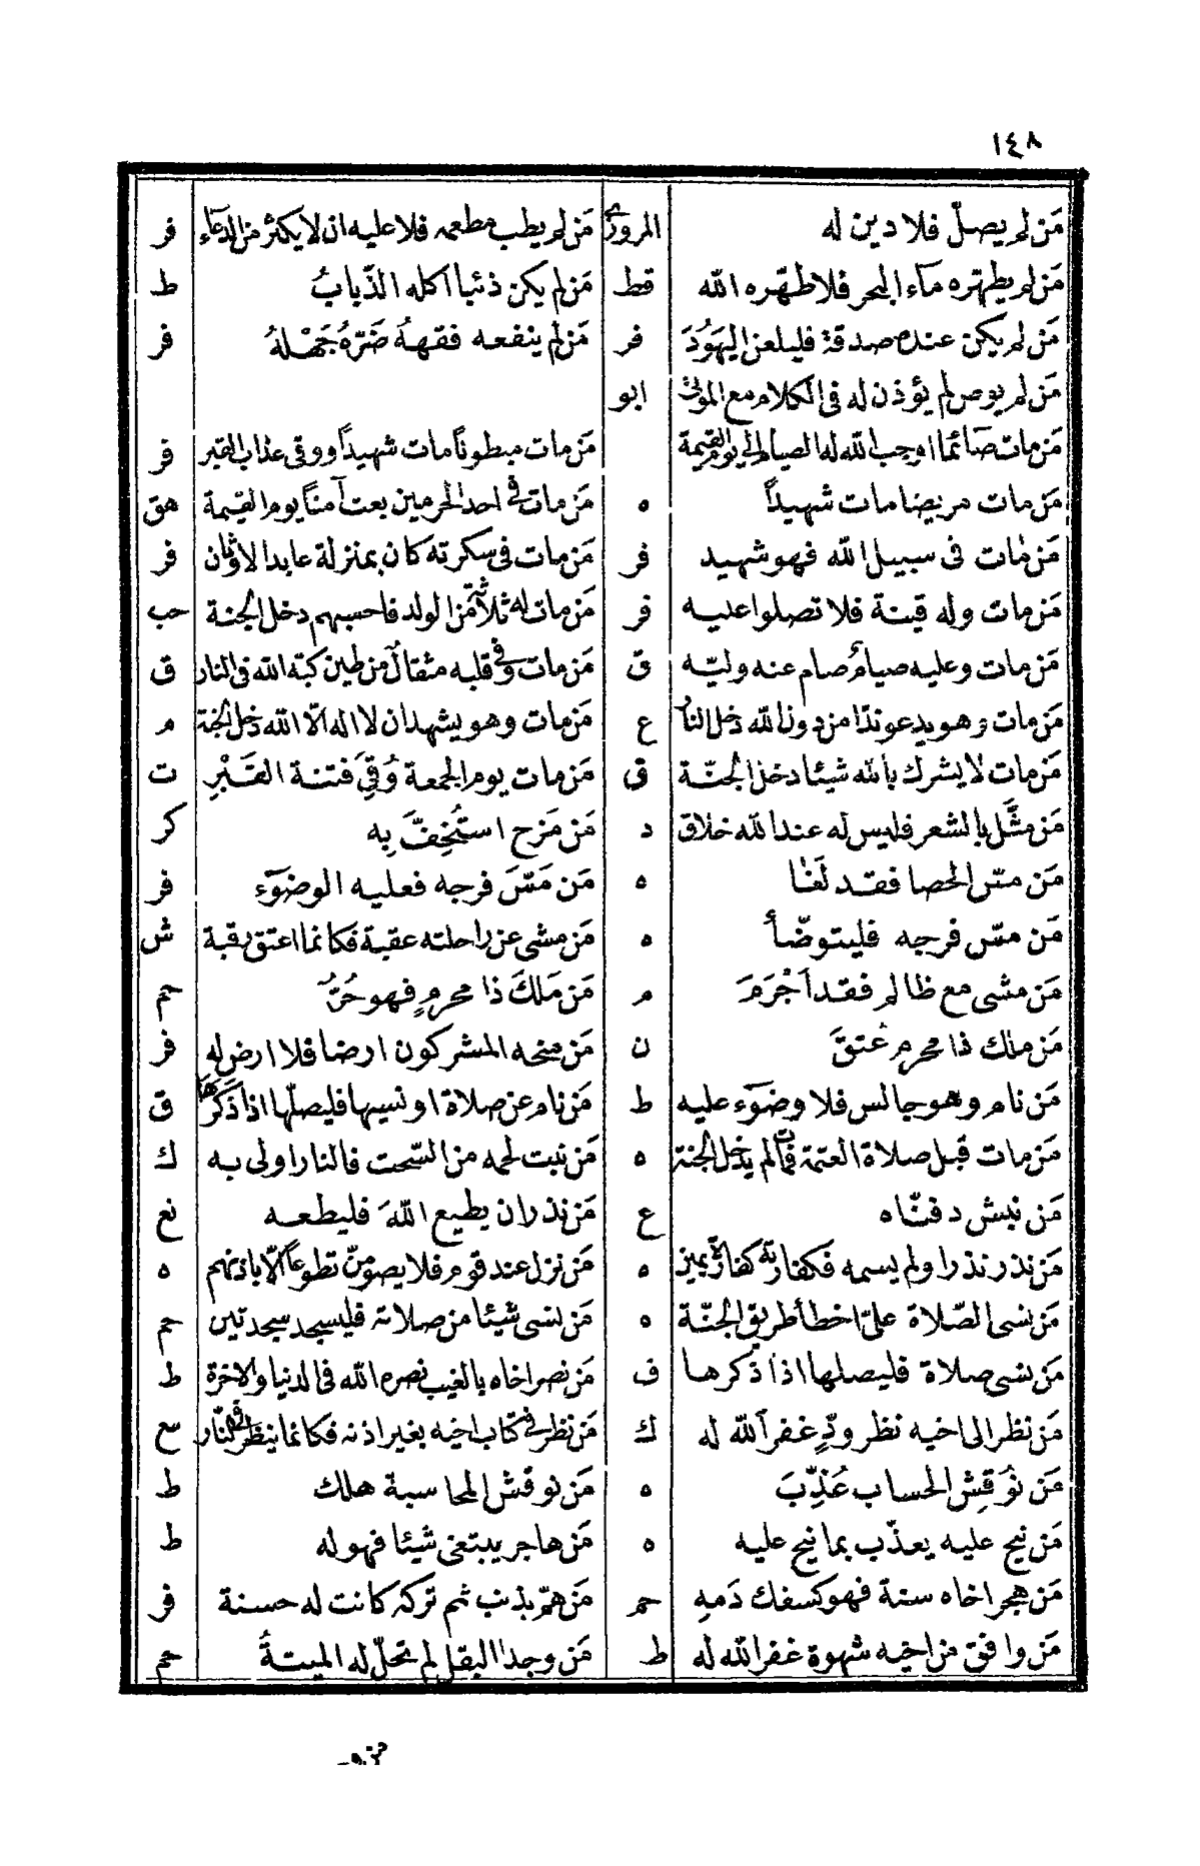 ١٤٨
مَن لم يصلّ فلا دين له المروزي مَن لم يطب مطعمه فلا عليه ان لا يكثر من الدعاء فر
مَن لم يطهره ماء البحر فلا طهّره الله قط مَن لم يكن ذئبا اكله الذّيابُ ط
مَن لم يكن عنده صدقة فليلعن اليَهُودَ فر مَن لم ينفعه فقههُ ضَرّهُ جَهْلهُ فر
مَن لم يوص لم يؤذن له فى الكلام مع الموتى ابو
مَن مات صآئما اوجب الله له الصيام الى يوم القيمة مَن مات مبطونًا مات شهيدًا ووقى عذاب القبر فر
مَن مات مريضا مات شهيدًا ه مَن مات فى احد الحرمين بعث آمنًا يوم القيمة هق
مَن مات فى سبيل الله فهو شهيد فر مَن مات فى سكرته كان بمنزلة عابد الاوثان فر
مَن مات وله قينة فلا تصلوا عليه فر مَن مات له ثلاثة من الولد فاحسبهم دخل الجنة حب
مَن مات وعليه صيام صام عنه وليّه ق مَن مات وفى قلبه مثقالٌ من طين كبّه الله فى النار ق
مَن مات وهو يدعو ندّا من دون الله دخل النار ع مَن مات وهو يشهد ان لا اله الّا الله دخل الجنة م
مَن مات لا يشرك بالله شيئا دخل الجنّة ق مَن مات يوم الجمعة وُقِىَ فتنة القَبْرِ ت
مَن مثَّل بالشعر فليس له عند الله خلاق د مَن مَزح استُخِفّ بِه كر
مَن مسّ الحصا فقد لَغَا ه مَن مَسّ فرجه فعليه الوضوٓء فر
مَن مسّ فرجه فليتوضّأ ه مَن مشى عن راحلته عقبة فكانما اعتق رقبة ش
مَن مشى مع ظالم فقد اَجْرَمَ م مَن مَلكَ ذا محرمٍ فهو حُرٌّ حم
مَن ملك ذا محرم عُتقَ ن مَن منحه المشركون ارضا فلا ارض له فر
مَن نام وهو جالس فلا وضوٓء عليه ط مَن نام عن صلاة او نسيها فليصلّها اذا ذكرها ق
مَن مات قبل صلاة العتمة فمات لم يدخل الجنة ه مَن نبت لحمه من السّحت فالنار اولى به ك
مَن نبش دفنّاه ع مَن نذر ان يطيع اللهَ فليطعه نع
مَن نذر نذرا ولم يسمه فكفارته كفارة يمين ه مَن نزل عند قوم فلا يصومنّ تطوعاً الّا باذنهم ه
مَن نسى الصّلاة علىّ اخطأ طريق الجنّة ه مَن نسى شيئا من صلاته فليسجد سجدتين حم
مَن نسى صلاة فليصلها اذا ذكرها ف مَن نصر اخاه بالغيب نصره الله فى الدنيا والاخرة ط
مَن نظر الى اخيه نظر ودٍّ غفر الله له ك مَن نظر فى كتاب اخيه بغير اذنه فكانما ينظر فى النّار سع
مَن نُوقِش الحساب عُذِّبَ ه مَن نوقش المحاسبة هلك ط
مَن نيح عليه يعذّب بما نيح عليه ه مَن هاجر يبتغى شيئا فهو له ط
مَن هجر اخاه سنة فهو كسفك دَمهِ حم مَن همّ بذنب ثم تركه كانت له حسنة فر
مَن وافق من اخيه شهوة غفر الله له ط مَن وجد البقل لم تحلّ له الميتةُ حم